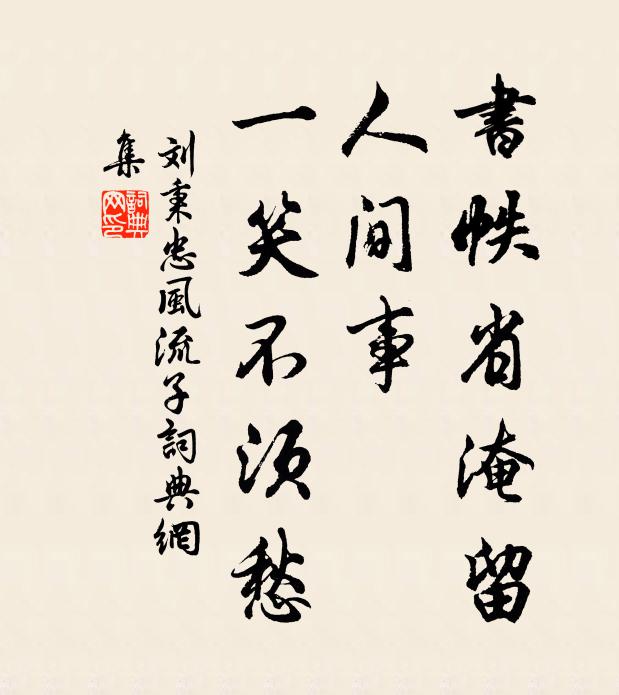 書帙省淹留
人間事
一笑不須愁
刘秉忠風流子詞典網
集
詞典網印